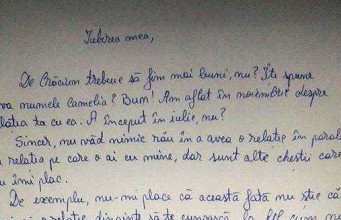 Iubirea mea,
De Crăciun trebuie să fim mai buni, nu? Îți spune
numele Camelia? Bum! Am aflat în noiembrie despre
ta cu ea. A început în iulie, nu?
Sincer, nu văd nimic rău în a avea o relație în paral
relația pe care o ai cu mine, dar sunt alte chestii care
îmi plac.
De exemplu, nu-mi place că această fată nu știe că
o relație dinainte să te cunoască, la fel cum nu